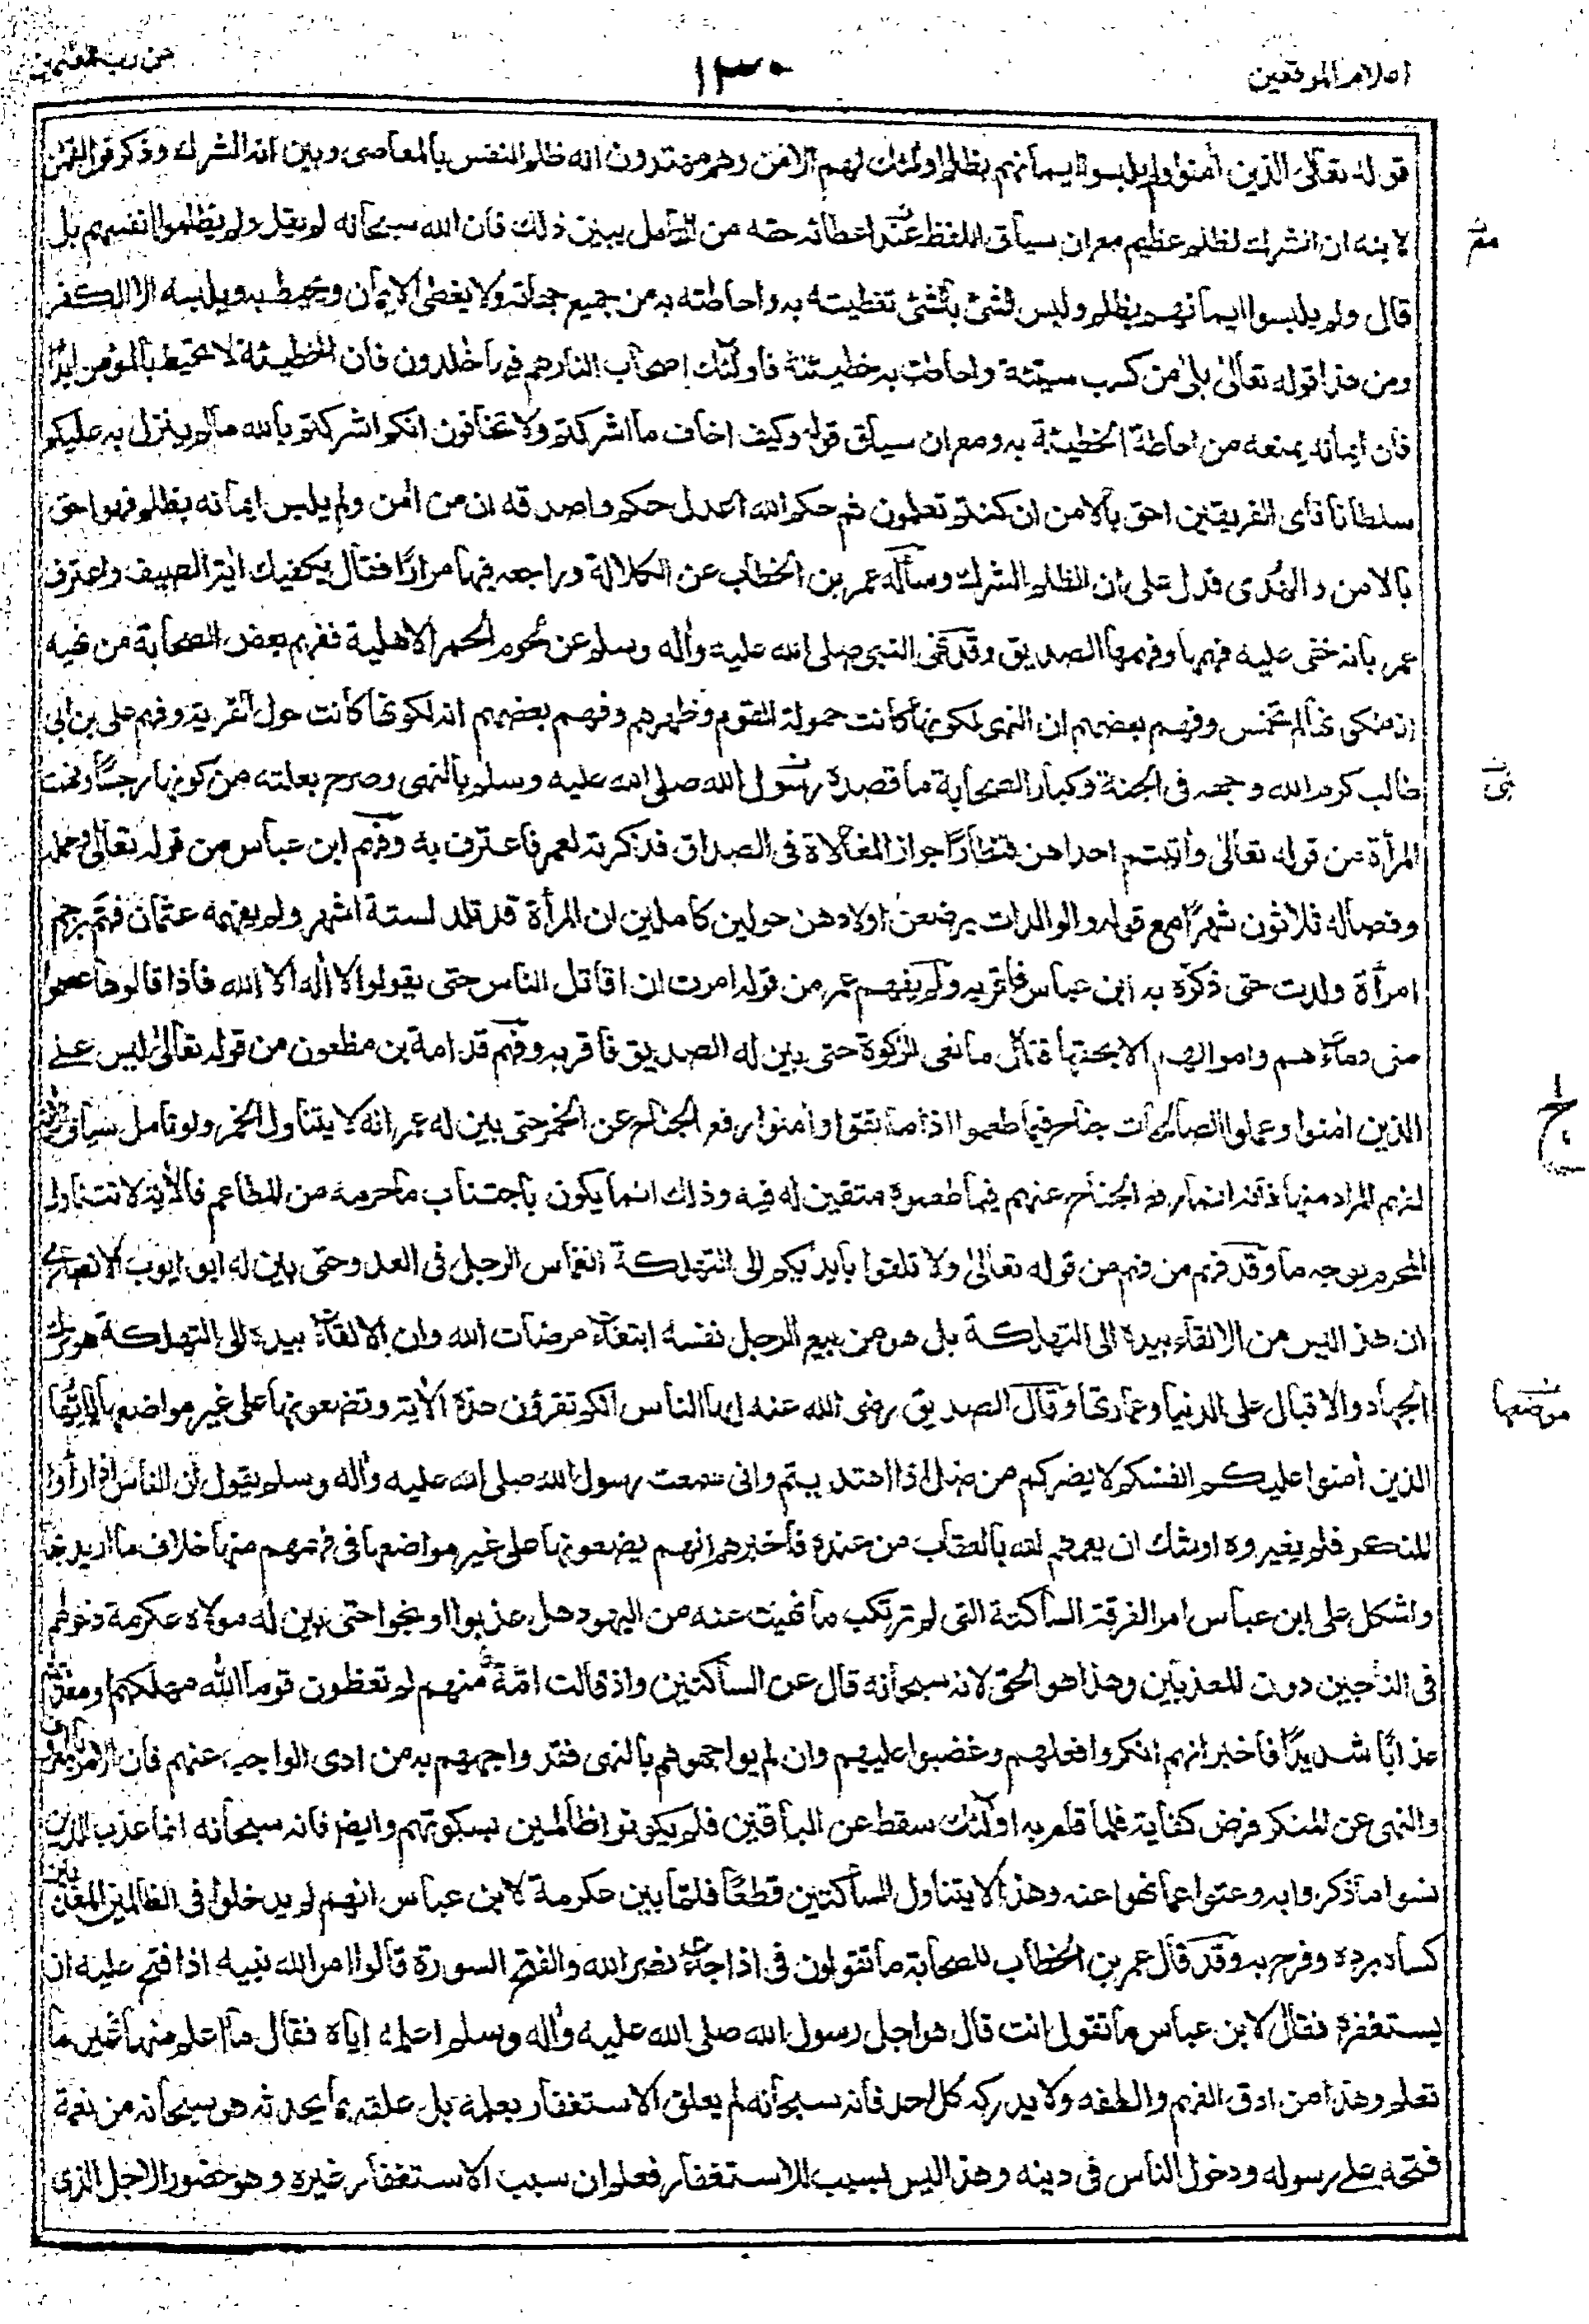 اعلام الموقعين
١٣٠
عن رب العلمين
قوله تعالى الذين اٰمنوا ولم يلبسوا ايمانهم بظلم اولئك لهم الامن وهم مهتدون انه ظلم النفس بالمعاصى وبين انه الشرك وذكر قول لقمٰن
لابنه ان الشرك لظلم عظيم مع ان سياق اللفظ عند اعطائه حقه من التأمل يبين ذلك فان الله سبحانه لم يقل ولم يظلموا انفسهم بل
قال ولم يلبسوا ايمانهم بظلم ولبس الشئ بالشئ تغطيته به واحاطته به من جميع جهاته ولا يغطى الايمان ويحيط به ويلبسه الا الكفر
ومن هذا قوله تعالىٰ بلىٰ من كسب سيئة واحاطت به خطيئته فاولئك اصحاب النار هم فيها خٰلدون فان الخطيئة لا تحيط بالمؤمن ابدًا
فان ايمانه يمنعه من احاطة الخطيئة به ومع ان سياق قوله وكيف اخاف ما اشركتم ولا تخافون انكم اشركتم بالله ما لم ينزل به عليكم
سلطانا فاى الفريقين احق بالامن ان كنتم تعلمون ثم حكم الله اعدل حكم واصدقه ان من اٰمن ولم يلبس ايمانه بظلم فهو احق
بالامن والهُدى فدل على ان الظلم الشرك وسأله عمر بن الخطاب عن الكلالة وراجعه فيها مرارًا فقال يكفيك اٰية الصيف واعترف
عمر بانه خفى عليه فهمها وفهمها الصديق وقد نهى النبى صلى الله عليه واٰله وسلم عن لحوم الحمر الاهلية ففهم بعض الصحابة من نهيه
انه لكونها لم تخمس وفهم بعضهم ان النهى لكونها كانت حمولة القوم وظهرهم وفهم بعضهم انه لكونها كانت حول القرية وفهم على بن ابى
طالب كرم الله وجهه فى الجنة وكبار الصحابة ما قصده رسول الله صلى الله عليه وسلم بالنهى وصرح بعلته من كونها رجسًا وفهمت
المرأة من قوله تعالى واٰتيتم احداهن قنطارًا جواز المغالاة فى الصداق فذكرته لعمر فاعترف به وفهم ابن عباس من قوله تعالى وحمله
وفصاله ثلاثون شهرًا مع قوله والوالدات يرضعن اولادهن حولين كاملين ان المرأة قد تلد لستة اشهر ولم يفهمه عثمان فهم برجم
امرأة ولدت حتى ذكّره به ابن عباس فاقر به ولم يفهم عمر من قوله امرت ان اقاتل الناس حتى يقولوا لا اله الا الله فاذا قالوها عصموا
منى دماءهم واموالهم الا بحقها قتال مانعى الزكوة حتى بين له الصديق فاقر به وفهم قدامة بن مظعون من قوله تعالىٰ ليس على
الذين اٰمنوا وعملوا الصالحات جناح فيما طعموا اذا ما اتقوا واٰمنوا رفع الجناح عن الخمر حتى بين له عمر انه لا يتناول الخمر ولو تأمل سياق الاٰية
لفهم المراد منها فانه انما رفع الجناح عنهم فيما طعموه متقين له فيه وذلك انما يكون باجتناب ما حرمه من المطاعم فالاٰية لا تتناول
المحرم بوجه ما وقد فهم من فهم من قوله تعالىٰ ولا تلقوا بايديكم الى التهلكة انغماس الرجل فى العدو حتى بين له ابو ايوب الانصارى
ان هذا ليس من الالقاء بيده الى التهلكة بل هو من بيع الرجل نفسه ابتغاء مرضات الله وان الالقاء بيده الى التهلكة هو ترك
الجهاد والاقبال على الدنيا وعمارتها وقال الصديق رضى الله عنه ايها الناس انكم تقرؤن هذه الاٰية وتضعونها على غير مواضعها يا ايُّها
الذين اٰمنوا عليكم انفسكم لا يضركم من ضل اذا اهتديتم وانى سمعت رسول الله صلى الله عليه واٰله وسلم يقول ان الناس اذا رأوا
المنكر فلم يغيروه اوشك ان يعمهم الله بالعقاب من عنده فاخبرهم انهم يضعونها على غير مواضعها فى فهمهم منها خلاف ما اريد بها
واشكل على ابن عباس امر الفرقة الساكتة التى لم ترتكب ما نهيت عنه من اليهود هل عذبوا او نجوا حتى بين له مولاه عكرمة دخولهم
فى الناجين دون المعذبين وهذا هو الحق لانه سبحانه قال عن الساكتين واذ قالت امّة منهم لم تعظون قوما الله مهلكهم او معذبهم
عذابًا شديدًا فاخبر انهم انكروا فعلهم وغضبوا عليهم وان لم يواجهوهم بالنهى فقد واجههم به من ادى الواجب عنهم فان الامر بالمعروف
والنهى عن المنكر فرض كفاية فلما قام به اولٰئك سقط عن الباقين فلم يكونوا ظالمين بسكوتهم وايضا فانه سبحانه انما عذب الذين
نسوا ما ذكروا به وعتوا عما نهوا عنه وهذا لا يتناول الساكتين قطعًا فلمّا بين عكرمة لابن عباس انهم لم يدخلوا فى الظالمين المعذبين
كساه برده وفرح به وقد قال عمر بن الخطاب للصحابة ما تقولون فى اذا جاء نصر الله والفتح السورة قالوا امر الله نبيه اذا فتح عليه ان
يستغفره فقال لابن عباس ما تقول انت قال هو اجل رسول الله صلى الله عليه واٰله وسلم اعلمه اياه فقال ما اعلم منها غير ما
تعلم وهذا من ادق الفهم والطفه ولا يدركه كل احد فانه سبحانه لم يعلق الاستغفار بعلمه بل علقه بما يحدثه هو سبحانه من نعمة
فتحه على رسوله ودخول الناس فى دينه وهذا ليس بسبب للاستغفار فعلم ان سبب الاستغفار غيره وهو حضور الاجل الذى
موضعها